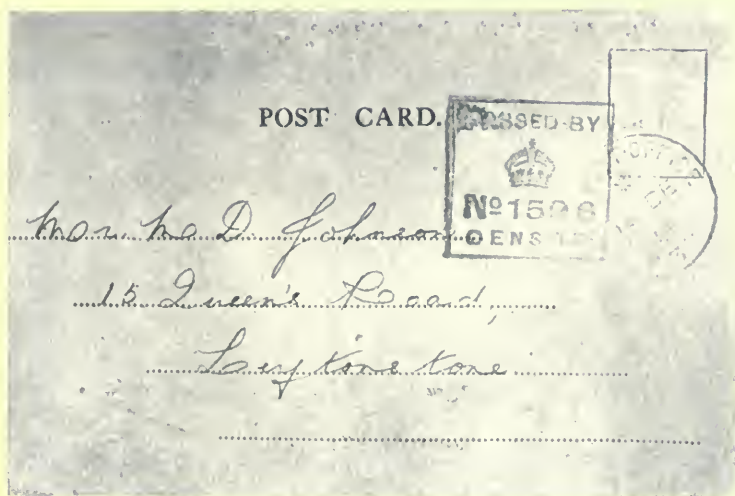 POST CARD.
PASSED BY
No 1598
CENSOR
D. Johnson
15 Queen's Road,
Leytonstone